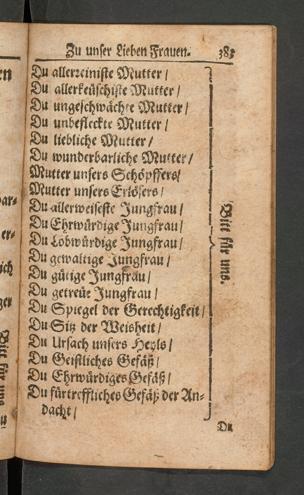 Zu unser Lieben Frauen. 383
Du allerreiniste Mutter /
Du allerkeüschiste Mutter /
Du ungeschwächte Mutter /
Du unbefleckte Mutter /
Du liebliche Mutter /
Du wunderbarliche Mutter /
Mutter unsers Schöpffers /
Mutter unsers Erlösers /
Du allerweiseste Jungfrau /
Du Ehrwürdige Jungfrau /
Du Lobwürdige Jungfrau /
Du gewaltige Jungfrau /
Du gütige Jungfrau /
Du getreüe Jungfrau /
Du Spiegel der Gerechtigkeit /
Du Sitz der Weisheit /
Du Ursach unsers Heyls /
Du Geistliches Gefäß /
Du Ehrwürdiges Gefäß /
Du fürtreffliches Gefäß der An-
dacht /
Bitt für uns.
Du